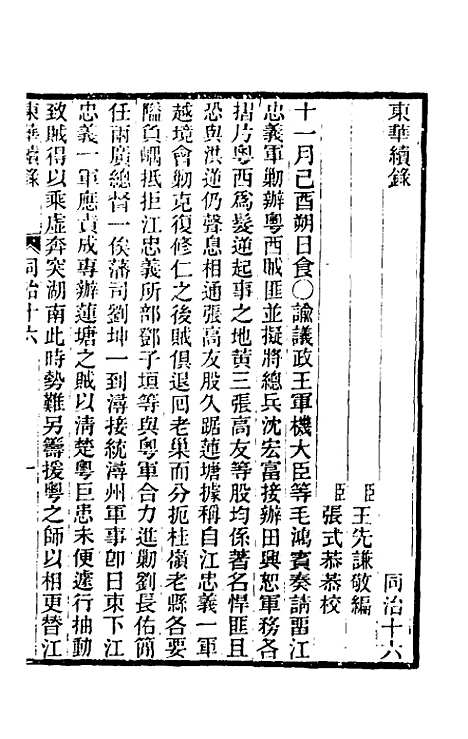 東華續錄
同治十六
臣王先謙敬編
臣張式恭恭校
十一月己酉朔日食〇諭議政王軍機大臣等毛鴻賓奏請畱江
忠義軍勦辦粵西賊匪並擬將總兵沈宏富接辦田興恕軍務各
摺片粵西為髮逆起事之地黃三張高友等股均係著名悍匪且
恐與洪逆仍聲息相通張高友股久踞蓮塘據稱自江忠義一軍
越境會勦克復修仁之後賊俱退囘老巢而分扼桂嶺老縣各要
隘負嵎抵拒江忠義所部鄧子垣等與粵軍合力進勦劉長佑簡
任兩廣總督一俟藩司劉坤一到潯接統潯州軍事卽日東下江
忠義一軍應責成專辦蓮塘之賊以清楚粵巨患未便遽行抽動
致賊得以乘虛奔突湖南此時勢難另籌援粵之師以相更替江
東華續錄
同治十六
一